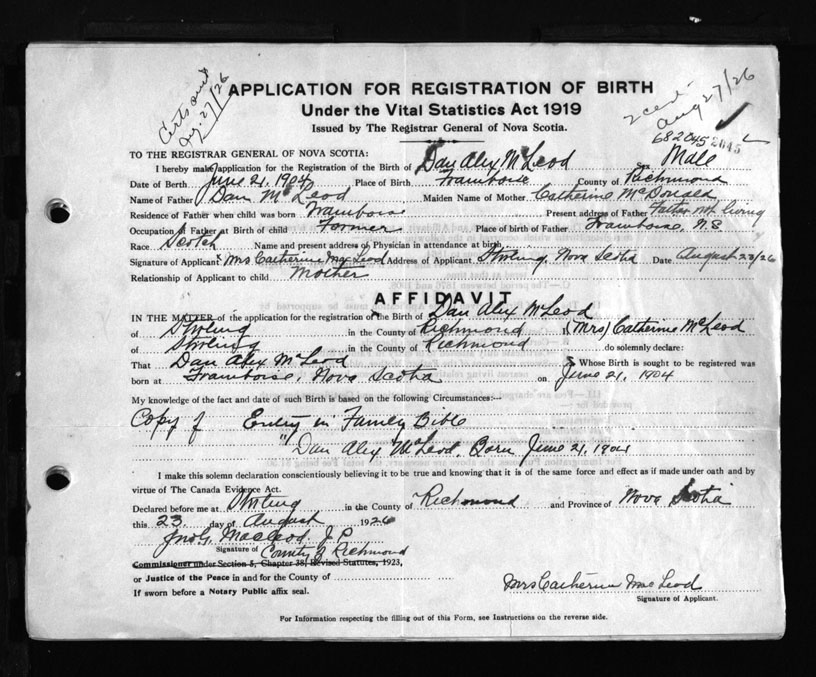 Certs sent
Aug. 27/26
APPLICATION FOR REGISTRATION OF BIRTH
Under the Vital Statistics Act 1919
Issued by The Registrar General of Nova Scotia.
2 cert
Aug 27/26
682045 2045
TO THE REGISTRAR GENERAL OF NOVA SCOTIA:
I hereby make application for the Registration of the Birth of Dan Alex McLeod Sex Male
Date of Birth June 21, 1904 Place of Birth Framboise County of Richmond
Name of Father Dan McLeod Maiden Name of Mother Catherine McDonald
Residence of Father when child was born Framboise Present address of Father Father not living
Occupation of Father at Birth of child Farmer Place of birth of Father Framboise, N.S
Race Scotch Name and present address of Physician in attendance at birth
Signature of Applicant Mrs Catherine MacLeod Address of Applicant Stirling, Nova Scotia Date August 23/26
Relationship of Applicant to child Mother
AFFIDAVIT
IN THE MATTER of the application for the registration of the Birth of Dan Alex McLeod
of Stirling in the County of Richmond I (Mrs) Catherine McLeod
of Stirling in the County of Richmond do solemnly declare:
That Dan Alex McLeod Whose Birth is sought to be registered was
born at Framboise, Nova Scotia on June 21, 1904
My knowledge of the fact and date of such Birth is based on the following Circumstances:—
Copy of Entry in Family Bible
"Dan Alex McLeod, Born June 21, 1904
I make this solemn declaration conscientiously believing it to be true and knowing that it is of the same force and effect as if made under oath and by
virtue of The Canada Evidence Act.
Declared before me at Stirling in the County of Richmond and Province of Nova Scotia
this 23 day of August 1926
Jno G. MacLeod J.P.
Signature of County of Richmond
Commissioner under Section 5, Chapter 38, Revised Statutes, 1923,
or Justice of the Peace in and for the County of
If sworn before a Notary Public affix seal.
Mrs Catherine MacLeod
Signature of Applicant.
For Information respecting the filling out of this Form, see Instructions on the reverse side.